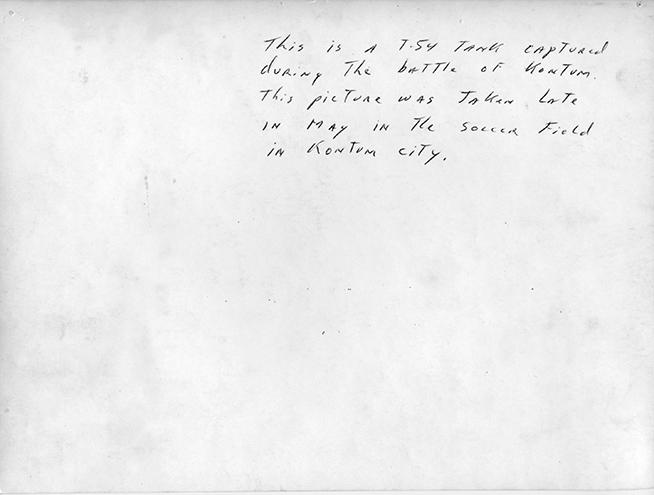 This is a T-54 Tank captured
during the battle of Kontum.
This picture was Taken Late
in May in the soccer Field
in Kontum city.